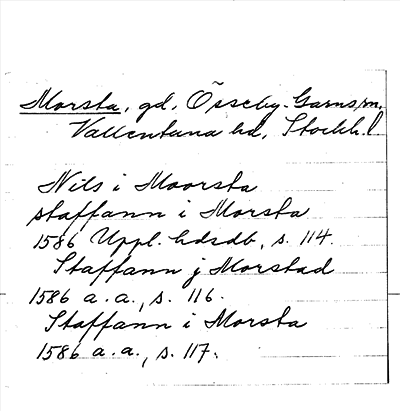 Morsta, gd, Össeby-Garns sn,
Vallentuna hd, Stockh. l
Nils i Moorsta
Staffann i Morsta
1586 Uppl. hdsdb, s. 114.
Staffann j Morstad
1586 a. a., s. 116.
Staffann i Morsta
1586 a. a., s. 117.